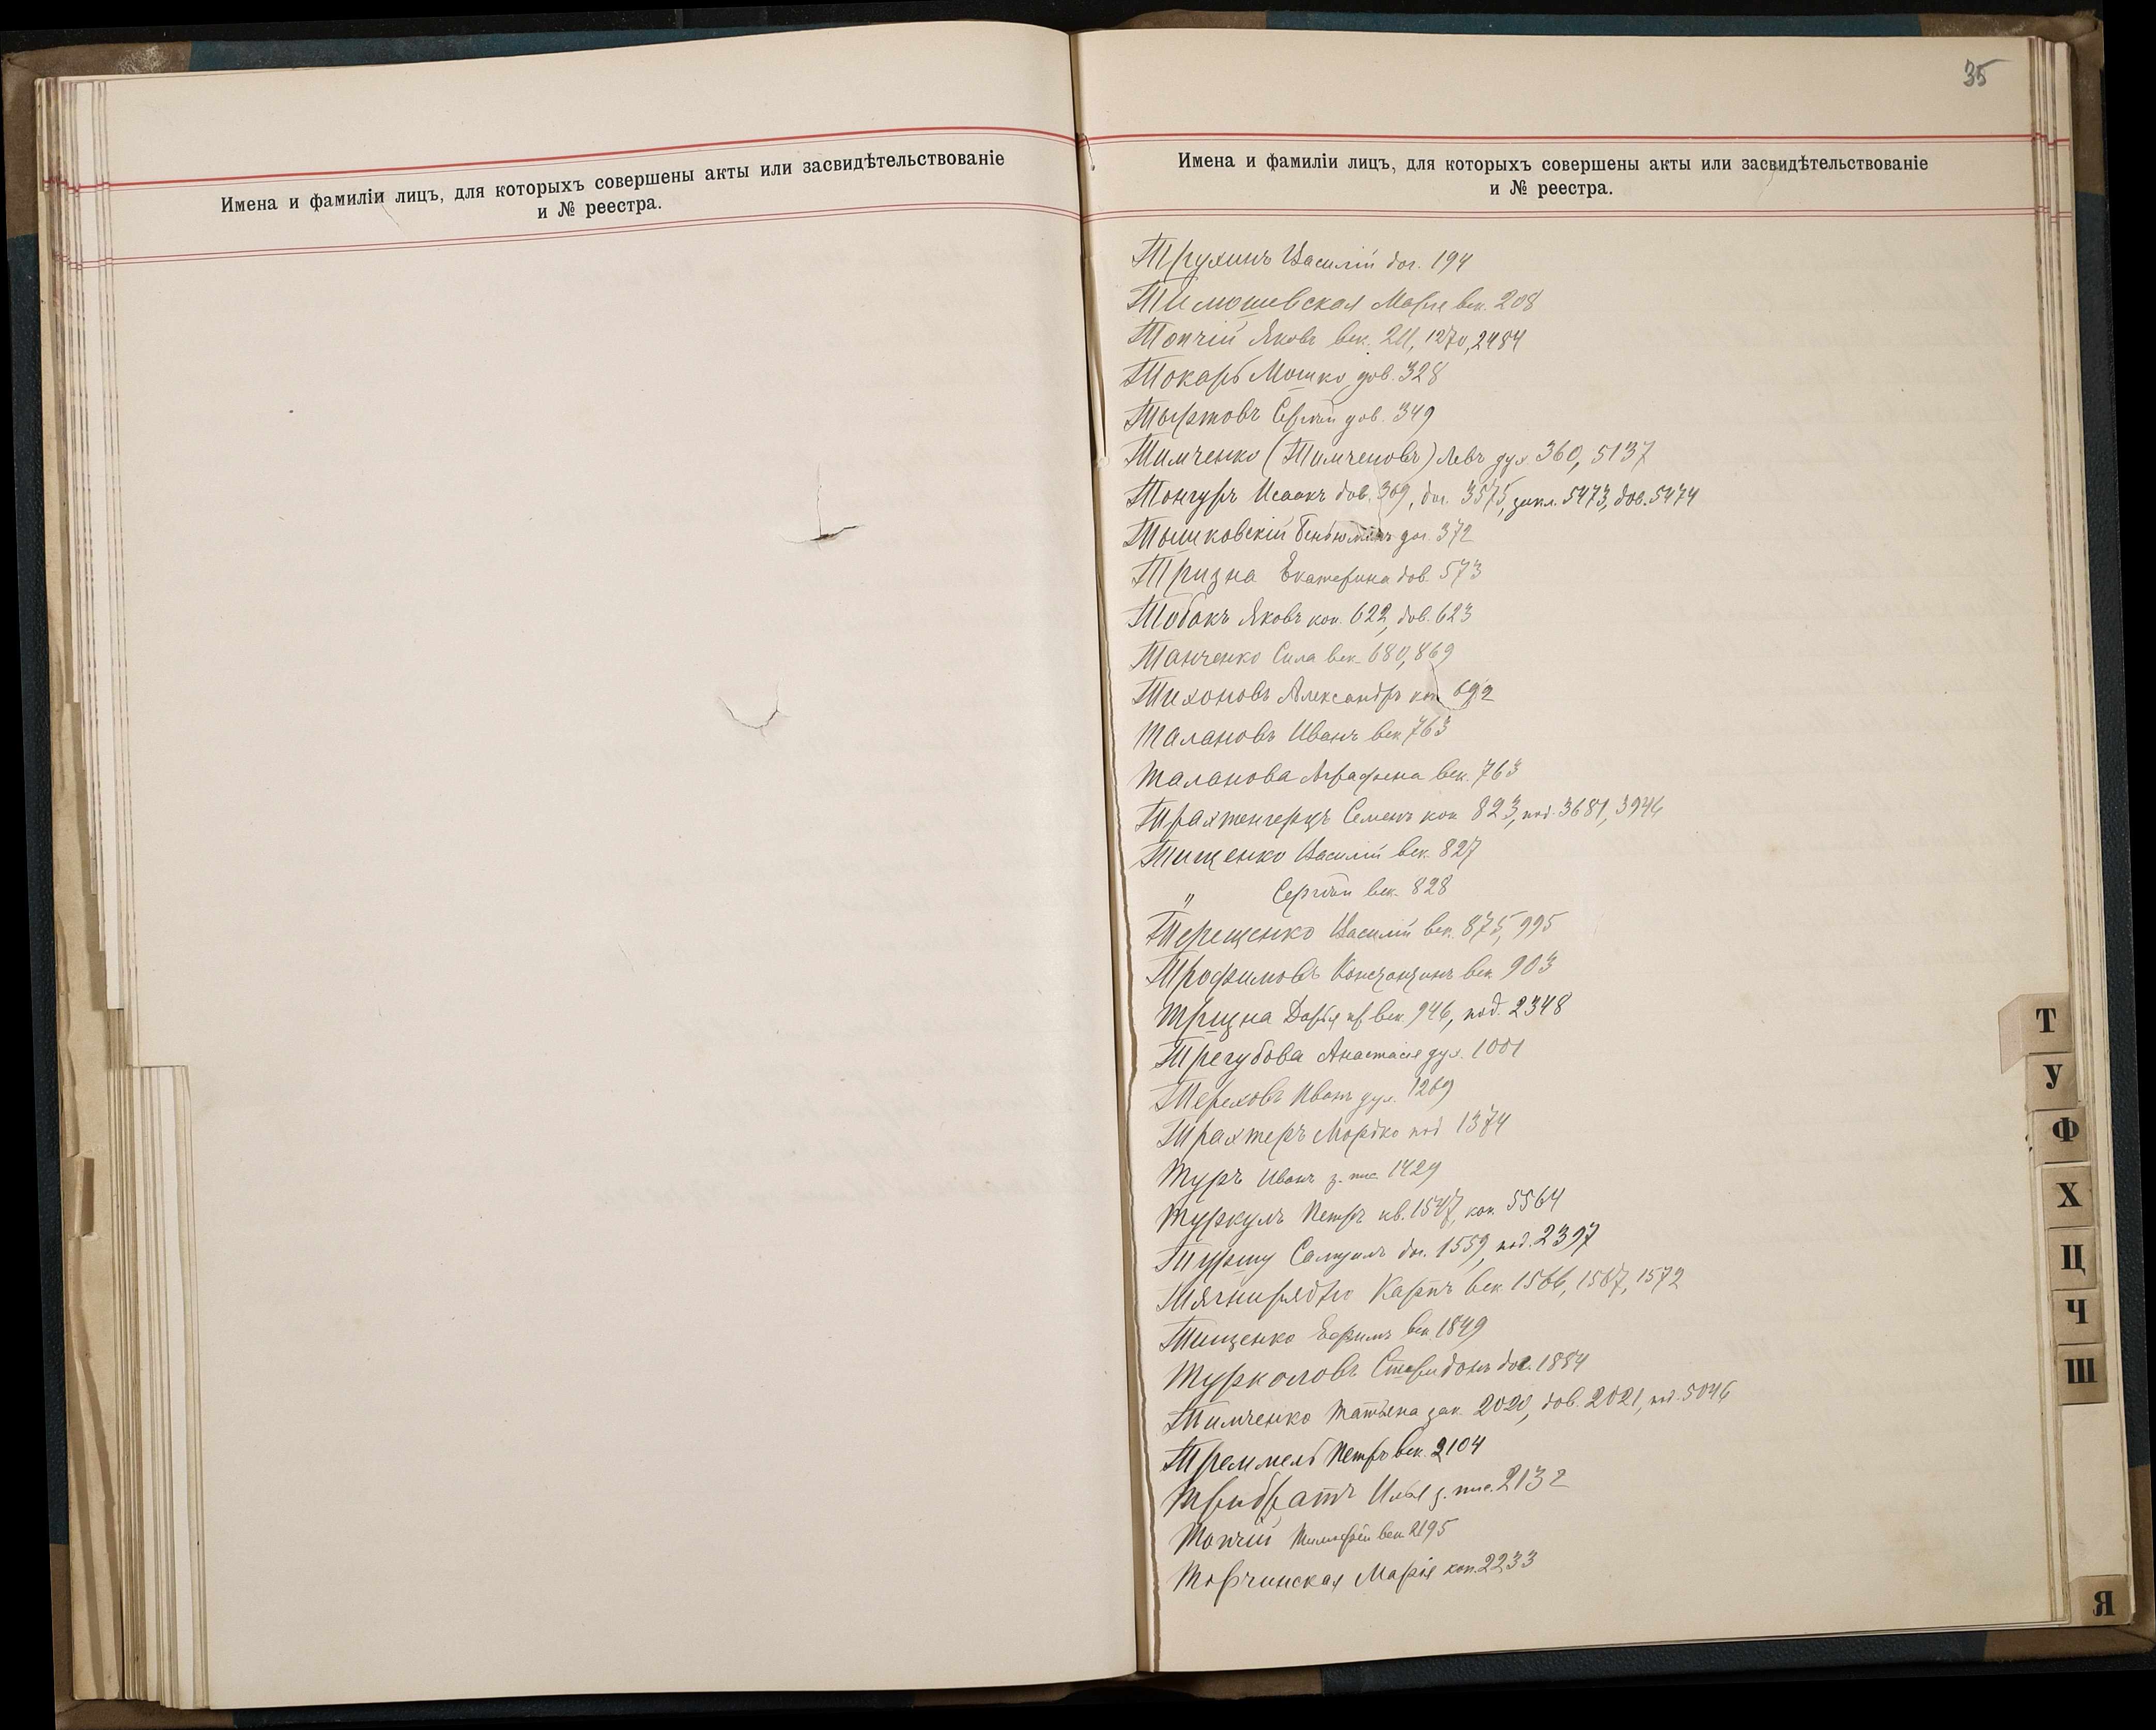 Имена и фамиліи лицъ, для которыхъ совершены акты или засвидѣтельствованіе
и № реестра.
35
Имена и фамиліи лицъ, для которыхъ совершены акты или засвидѣтельствованіе
и № реестра.
Трухинъ Василій дог. 194
Тимошевская Марія век. 208
Топчій Яковъ век. 211, 1270, 2484
Токарь Мошко дов. 328
Тыртовъ Сергѣй дов. 349
Тимченко (Тимченовъ) Левъ дух. 360, 5137
Тонгуръ Исаакъ дов. 369, дог. 3575, закл. 5473, дов. 5474
Тышковскій дог. 372
Тризна Екатерина дов. 573
Тобакъ Яковъ коп. 622, дов. 623
Танченко Сила век. 680, 869
Тихоновъ Александръ коп. 692
Талановъ Иванъ век. 763
Таланова Аграфена век. 763
Трахтенгерцъ Семенъ коп. 823, под. 3681, 3946
Тищенко Василій век. 827
" Сергѣй век. 828
Терещенко Василій век. 875, 995
Трофимовъ век. 903
Тризна Дарья век. 946, под. 2348
Трегубова Анастасія дух. 1001
Тереховъ Иванъ дух. 1269
Трахтеръ Мордко под. 1374
Туръ Иванъ з. 1429
Туркулъ Петръ кв. 1547, коп. 5564
Самуилъ дог. 1559, под. 2397
Тягнирядно Карпъ век. 1566, 1567, 1572
Тищенко Ефимъ век. 1849
Турколовъ Спиридонъ дог. 1884
Тимченко Татьяна зак. 2020, дов. 2021, под. 5046
Треммель Петръ век. 2104
Трибратъ Илья з. 2132
Топчій Тимофей век. 2195
Товчинская Марія коп. 2233
Т
У
Ф
Х
Ц
Ч
Ш
Я